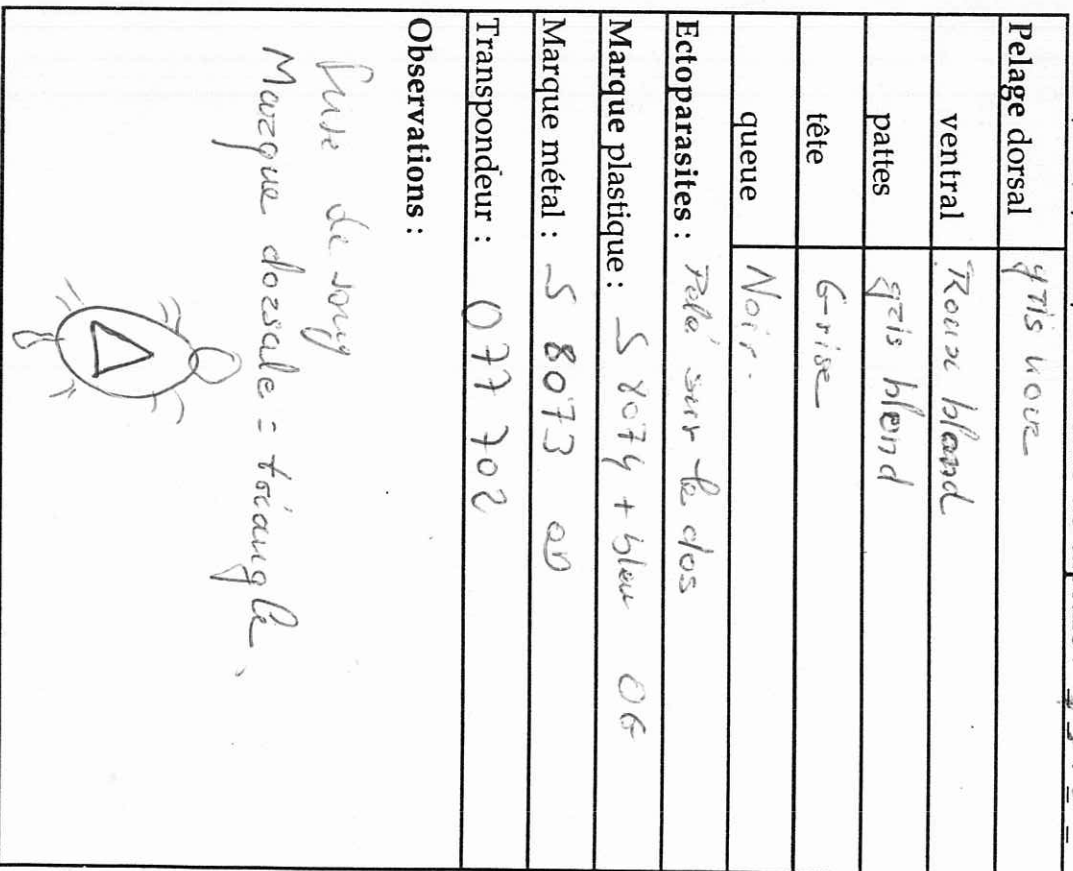 Pelage dorsal gris noir
ventral Roux blond
pattes gris blond
tête Grise
queue Noir.
Ectoparasites : Pelé sur le dos
Marque plastique : S 8074 + bleu OG
Marque métal : S 8073 OD
Transpondeur : 077 702
Observations :
Prise de sang
Marque dorsale = triangle.